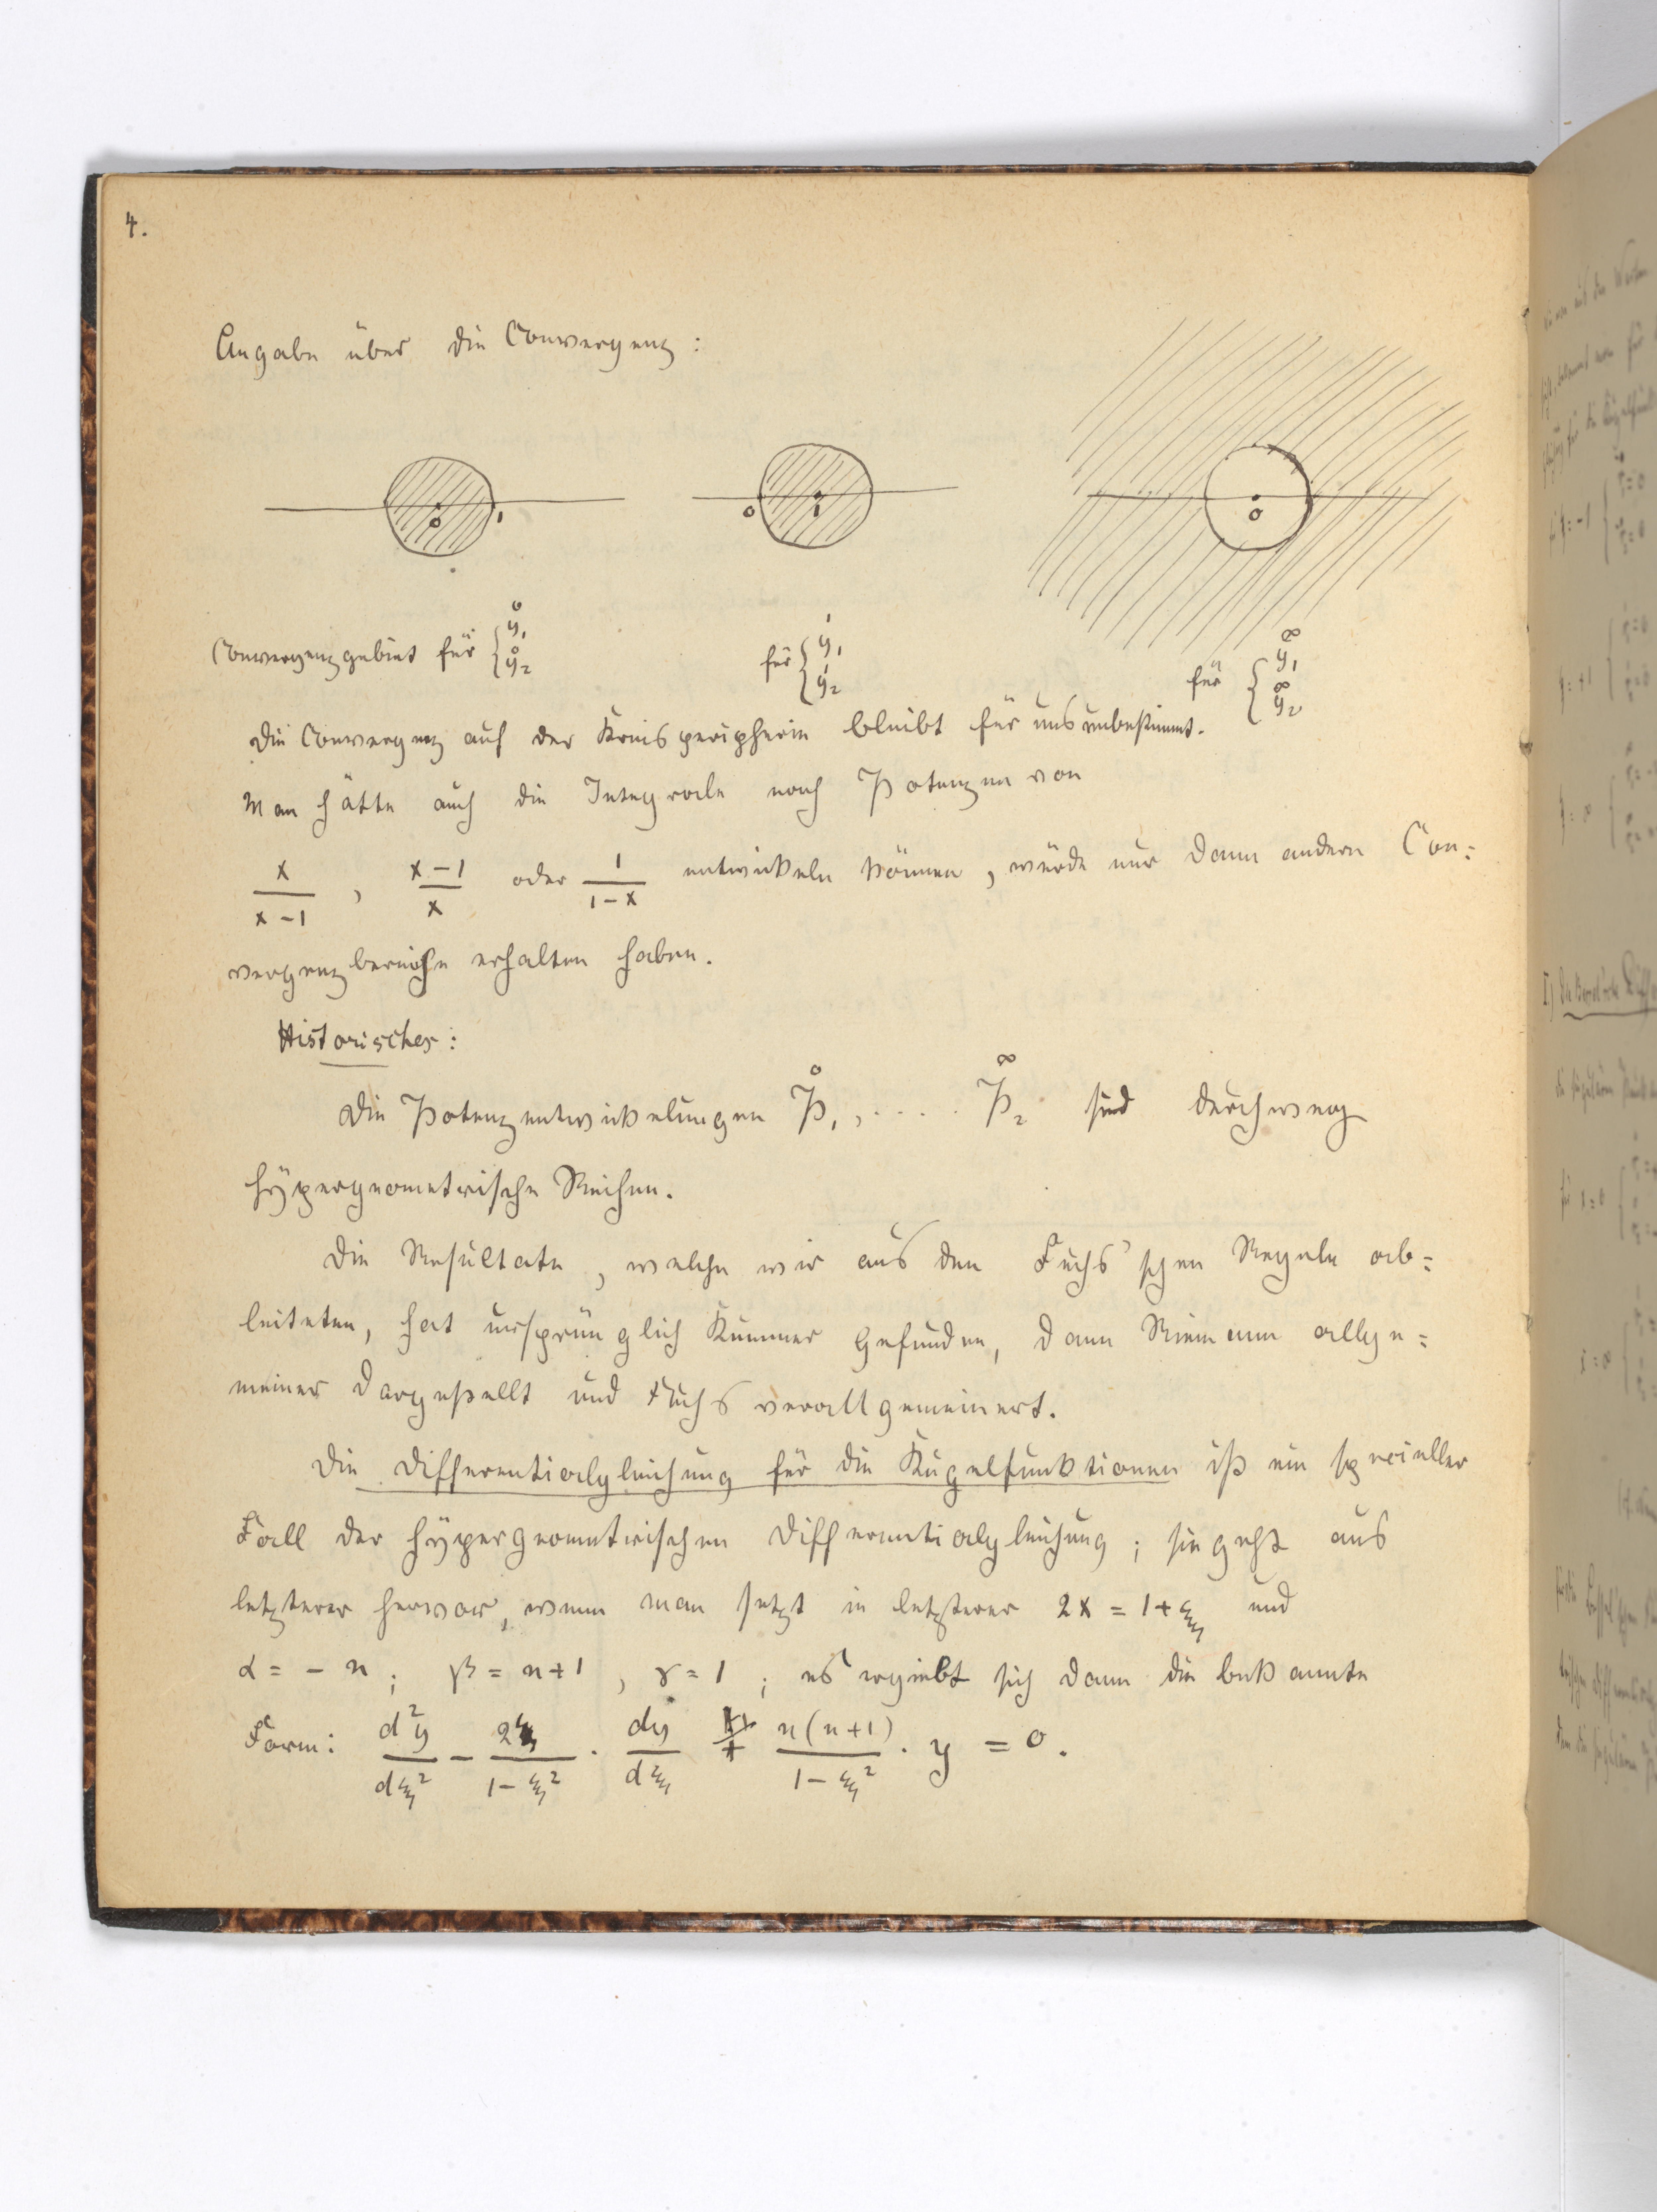 4.
Angabe über die Convergenz:
0 1 0 1 0
Convergenzgebiet für { y̥₁ y̥₂ für { y¹₁ y¹₂ für { y^∞₁ y^∞₂
Die Convergenz auf der Kreisperipherie bleibt für uns unbestimmt.
Man hätte auch die Integrale nach Potenzen von
x/(x-1) , (x-1)/x oder 1/(1-x) entwickeln können, würde nur dann andere Con=
vergenzbereiche erhalten haben.
Historisches:
Die Potenzentwickelungen P⁰₁, .... P^∞₂ sind durchweg
hypergeometrische Reihen.
Die Resultate, welche wir aus den Fuchs'schen Regeln ab=
leiteten, hat ursprünglich Kummer gefunden, dann Riemann allge=
meiner dargestellt und Fuchs verallgemeinert.
Die Differentialgleichung für die Kugelfunktionen ist ein specieller
Fall der hypergeometrischen Differentialgleichung; sie geht aus
letzterer hervor, wenn man setzt in letzterer 2x = 1+ξ und
α = - n; β = n+1, γ = 1; es ergiebt sich dann die bekannte
Form: d²y/dξ² - 2ξ/(1-ξ²) · dy/dξ + n(n+1)/(1-ξ²) · y = 0.